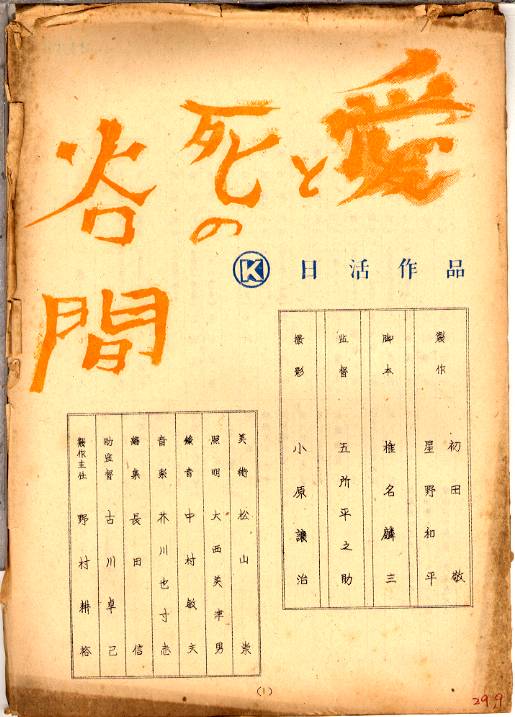 愛と
死の
谷間
K 日活作品
製作 初田敬
星野和平
脚本 椎名麟三
監督 五所平之助
撮影 小原譲治
美術 松山崇
照明 大西美津男
録音 中村敏夫
音楽 芥川也寸志
編集 長田信
助監督 古川卓己
製作主任 野村耕裕
(1)
29.9